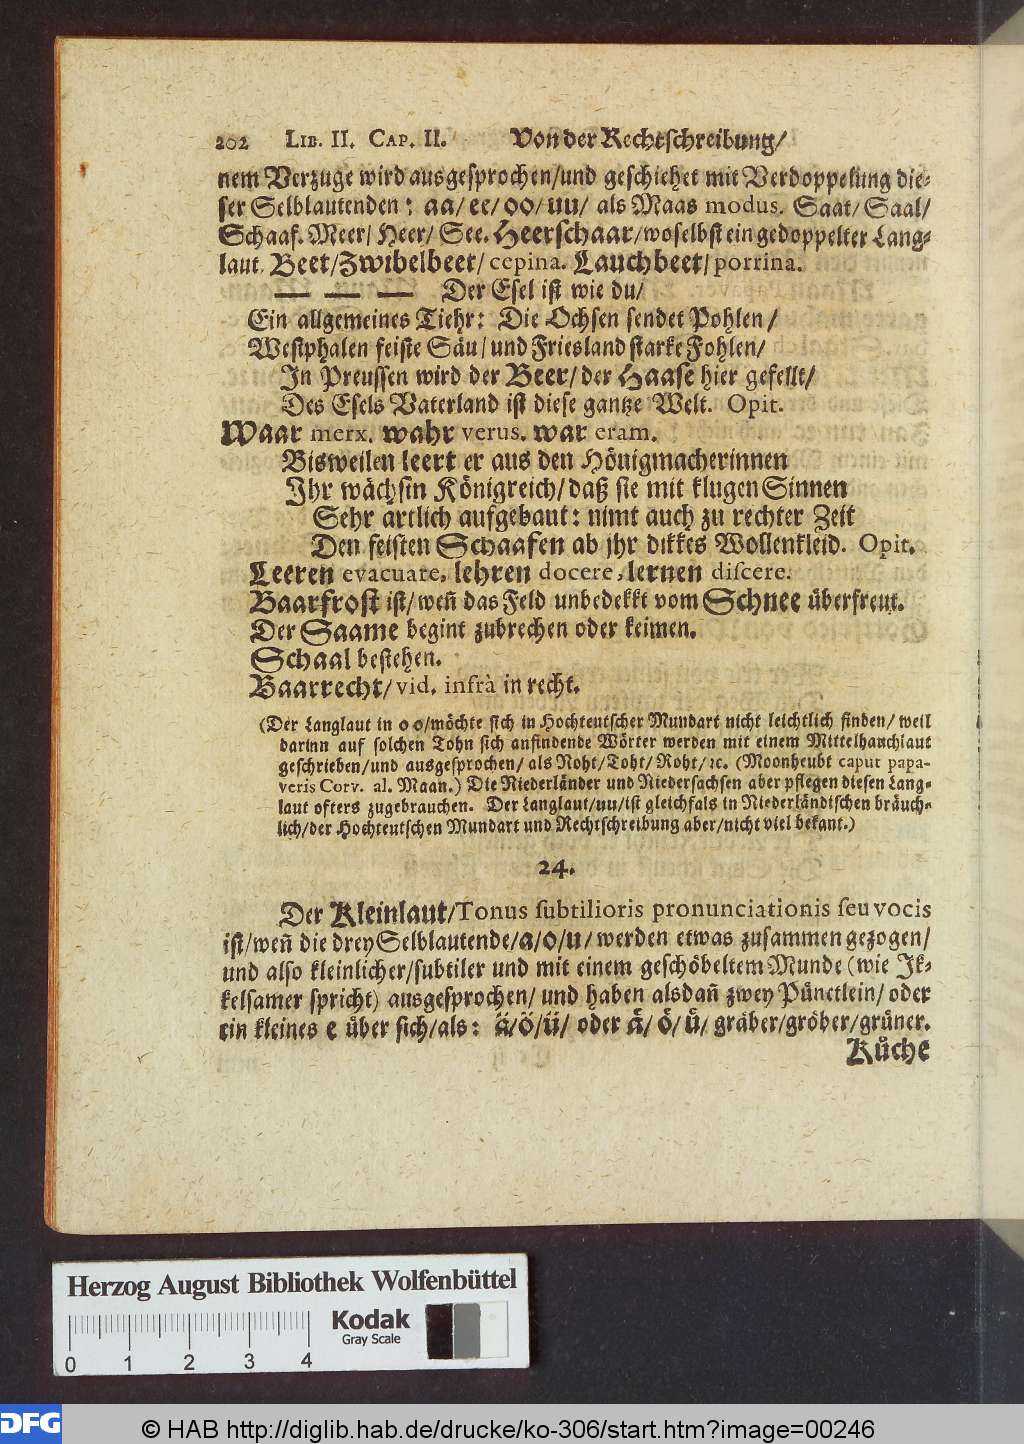 202 LIB. II. CAP. II. Von der Rechtschreibung/
nem Verzuge wird ausgesprochen/und geschiehet mit Verdoppelung die⸗
ser Selblautenden: aa/ ee/ oo/ uu/ als Maas modus. Saat/ Saal/
Schaaf. Meer/ Heer/ See. Heerschaar/woselbst ein gedoppelter Lang⸗
laut. Beet/Zwibelbeet/ cepina. Lauchbeet/porrina.
— — — Der Esel ist wie du/
Ein allgemeines Tiehr: Die Ochsen sendet Pohlen/
Westphalen feiste Säu/und Friesland starke Fohlen/
In Preussen wird der Beer/ der Haase hier gefellt/
Des Esels Vaterland ist diese gantze Welt. Opit.
Waar merx. wahr verus. war eram.
Bisweilen leert er aus den Hönigmacherinnen
Ihr wächsin Königreich/daß sie mit klugen Sinnen
Sehr artlich aufgebaut: nimt auch zu rechter Zeit
Den feisten Schaafen ab jhr dikkes Wollenkleid. Opit.
Leeren evacuare, lehren docere, lernen discere.
Baarfrost ist/weñ das Feld unbedekkt vom Schnee überfreut.
Der Saame begint zubrechen oder keimen.
Schaal bestehen.
Baarrecht/vid. infrà in recht.
(Der Langlaut in oo/möchte sich in Hochteutscher Mundart nicht leichtlich finden/ weil
darinn auf solchen Tohn sich anfindende Wörter werden mit einem Mittelhauchlaut
geschrieben/und ausgesprochen/ als Noht/Toht/ Roht/ ꝛc. (Moonheubt caput papa-
veris Corv. al. Maan.) Die Niederländer und Niedersachsen aber pflegen diesen Lang⸗
laut ofters zugebrauchen. Der Langlaut/uu/ist gleichfals in Niederländischen bräuch⸗
lich/der Hochteutschen Mundart und Rechtschreibung aber/nicht viel bekant.)
24.
Der Kleinlaut/Tonus subtilioris pronunciationis seu vocis
ist/weñ die drey Selblautende/a/o/u/ werden etwas zusammen gezogen/
und also kleinlicher/subtiler und mit einem geschöbeltem Munde (wie Ik⸗
kelsamer spricht) ausgesprochen/ und haben alsdañ zwey Pünctlein/ oder
ein kleines e über sich/als: ä/ö/ü/ oder aͤ/ oͤ/ uͤ/ graͤber/groͤber/gruͤner.
Kuͤche
Herzog August Bibliothek Wolfenbüttel
Kodak
Gray Scale
0 1 2 3 4
DFG © HAB http://diglib.hab.de/drucke/ko-306/start.htm?image=00246